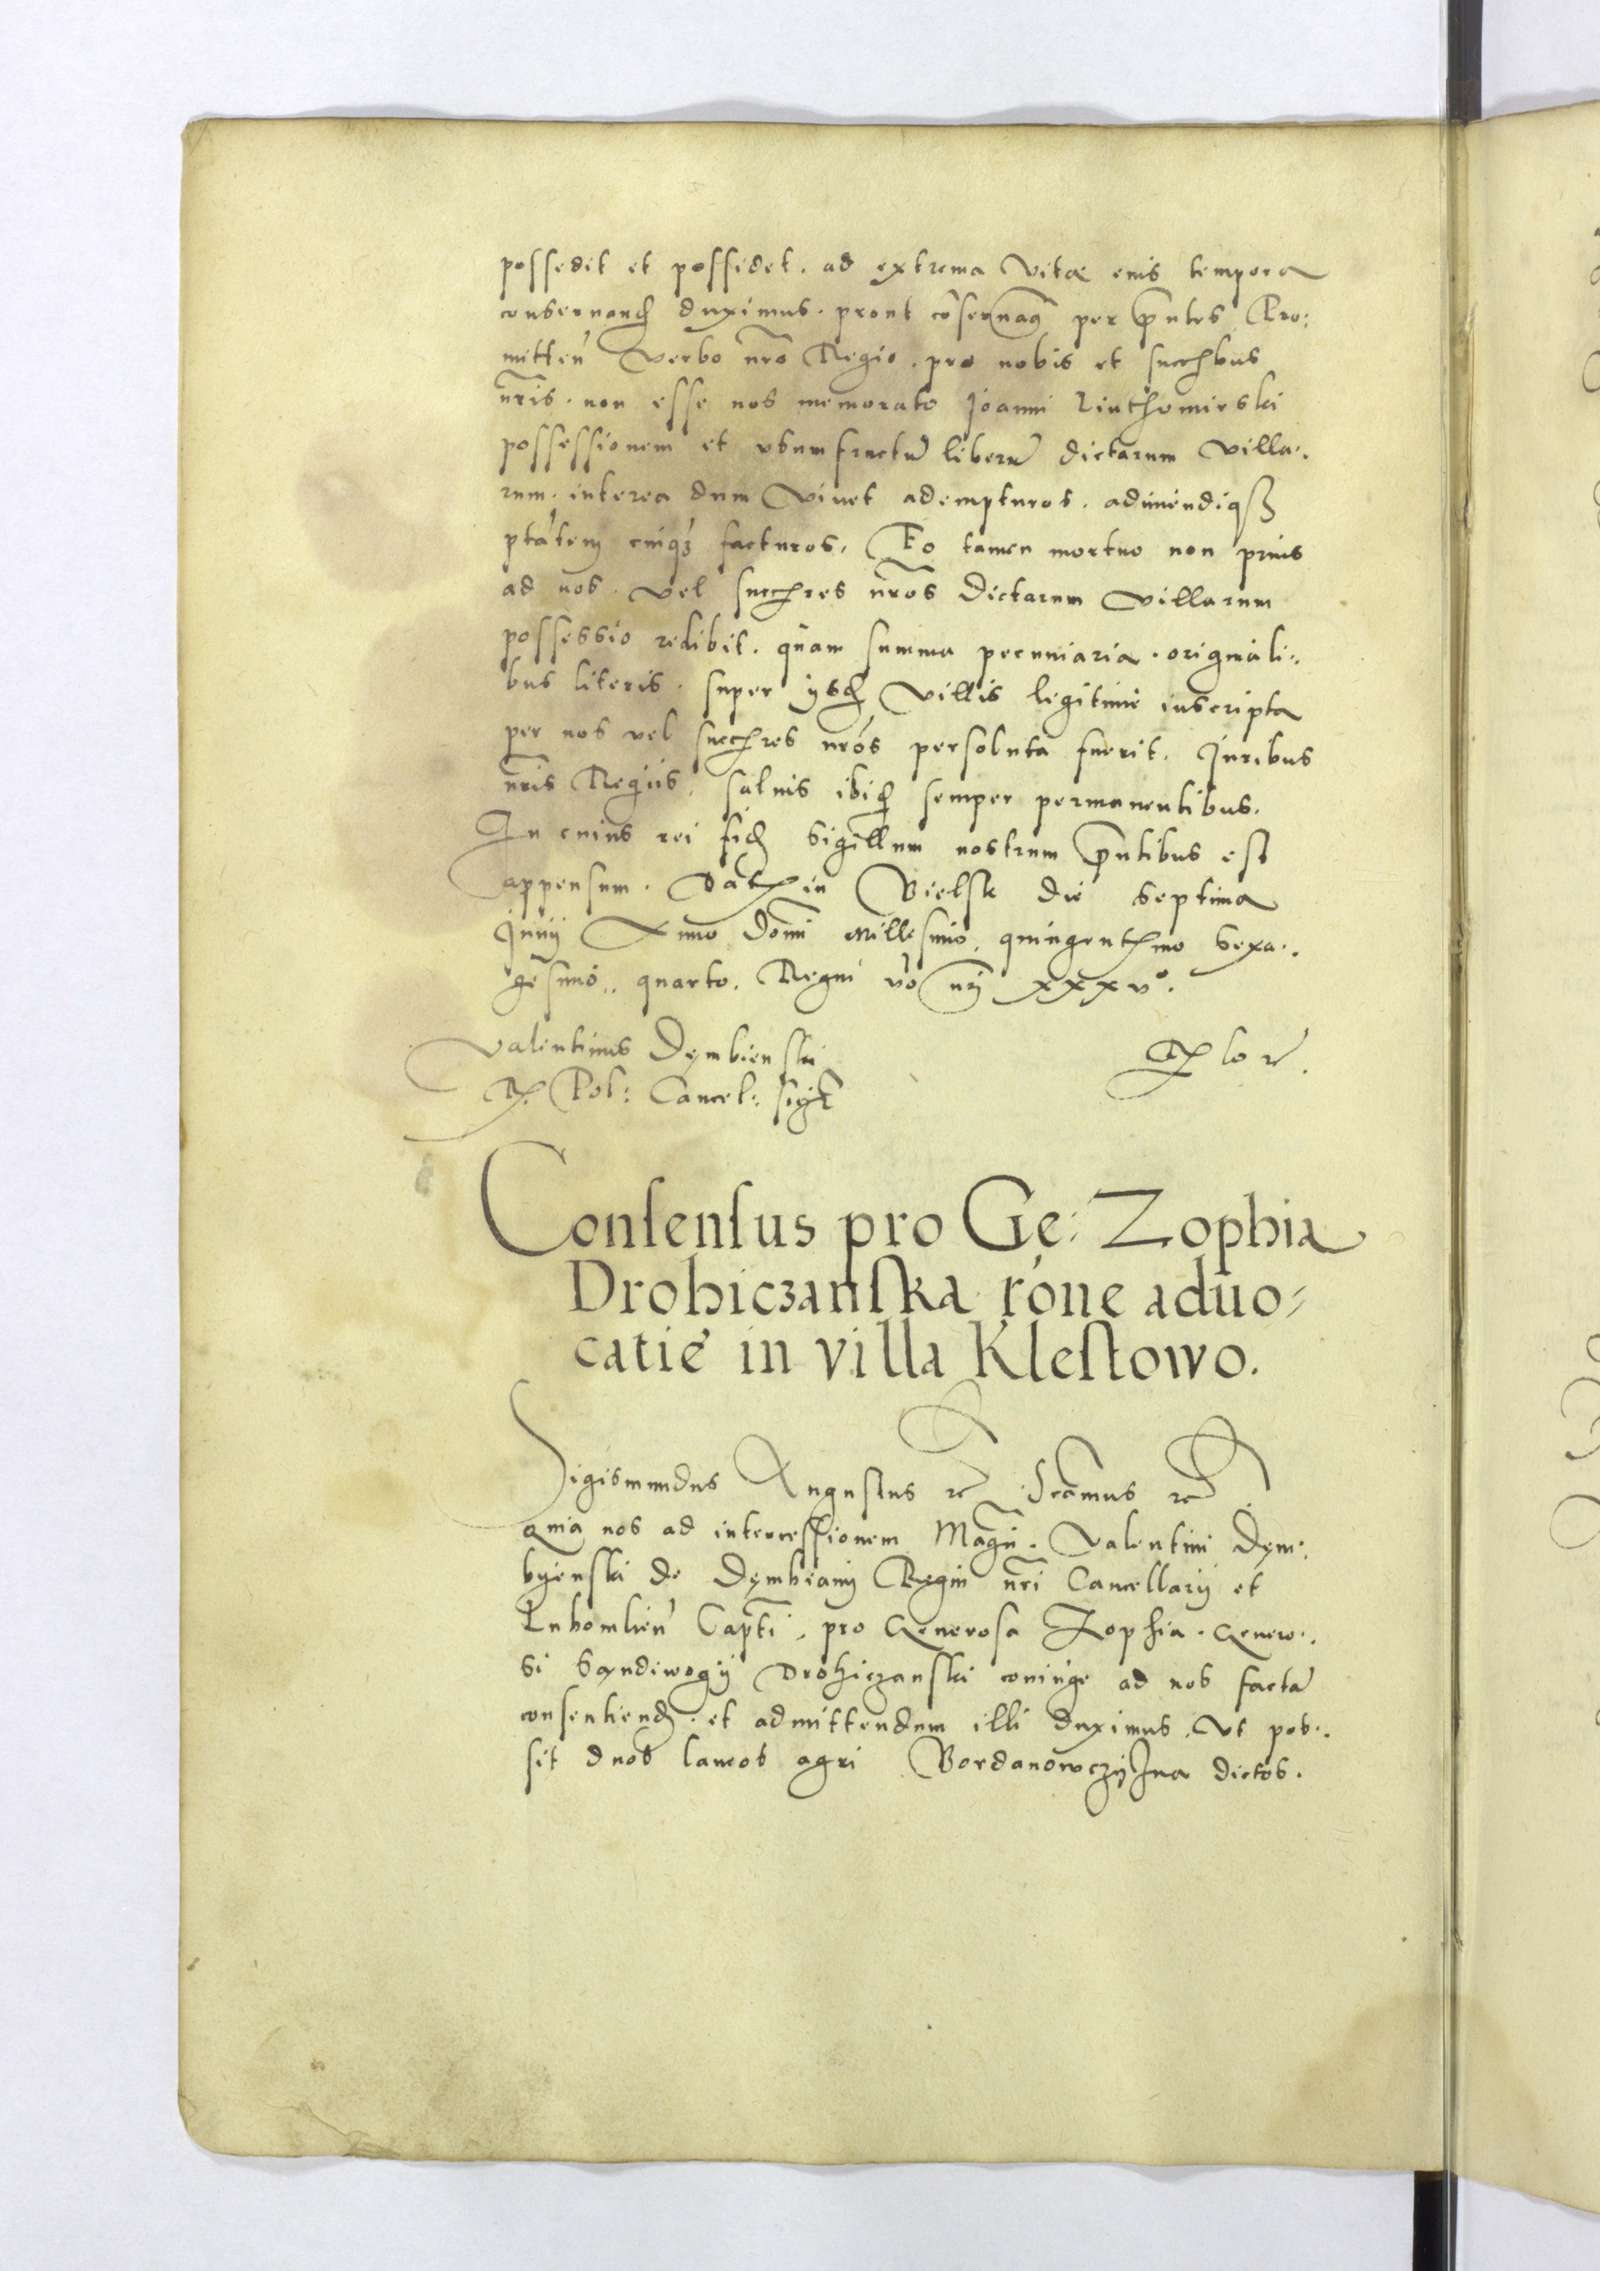 possedit et possidet. ad extrema vitae eius tempora
conservand duximus. prout coservamq per pntes Pro:
mitten verbo nro Regio. pro nobis et succbus
nris. non esse nos memorato Joanni Liuthomirski
possessionem et usumfructu liberu dictarum villa.
rum. interea dum vivet adempturos. adimendiqz
ptatem cuiqz facturos. Eo tamen mortuo non prius
ad nos. vel succres nros dictarum villarum
possessio redibit. quam summa pecuniaria. originali..
bus literis. super ysd villis legitime inscripta
per nos vel succres nros persoluta fuerit. Juribus
nris Regiis, salvis ibid semper permanentibus.
In cuius rei fid Sigillum nostrum pntibus est
appensum. Dat in Bielsk die septima
Junij Anno Domi Millesimo. quingentmo sexa..
gesimo.. quarto. Regni vo nri xxxv°.
Valentinus Dembienski
R. Pol: Cancel: sst

Consensus pro Ge: Zophia
Drohiczanska rone advo⸗
catie in villa Klestowo.
Sigismundus Augustus rc Scamus rc
Quia nos ad intercessionem Magci. Valentini Dem:
byenski de Dembiany Regni nri Cancellarij et
Lubomlien Capti, pro Generosa Zophia. Genero..
si Sandiwogij Drohiczanski coniuge ad nos facta
consentiend. et admittendum illi duximus. Ut pos..
sit duos laneos agri Bordanowczyzna dictos.